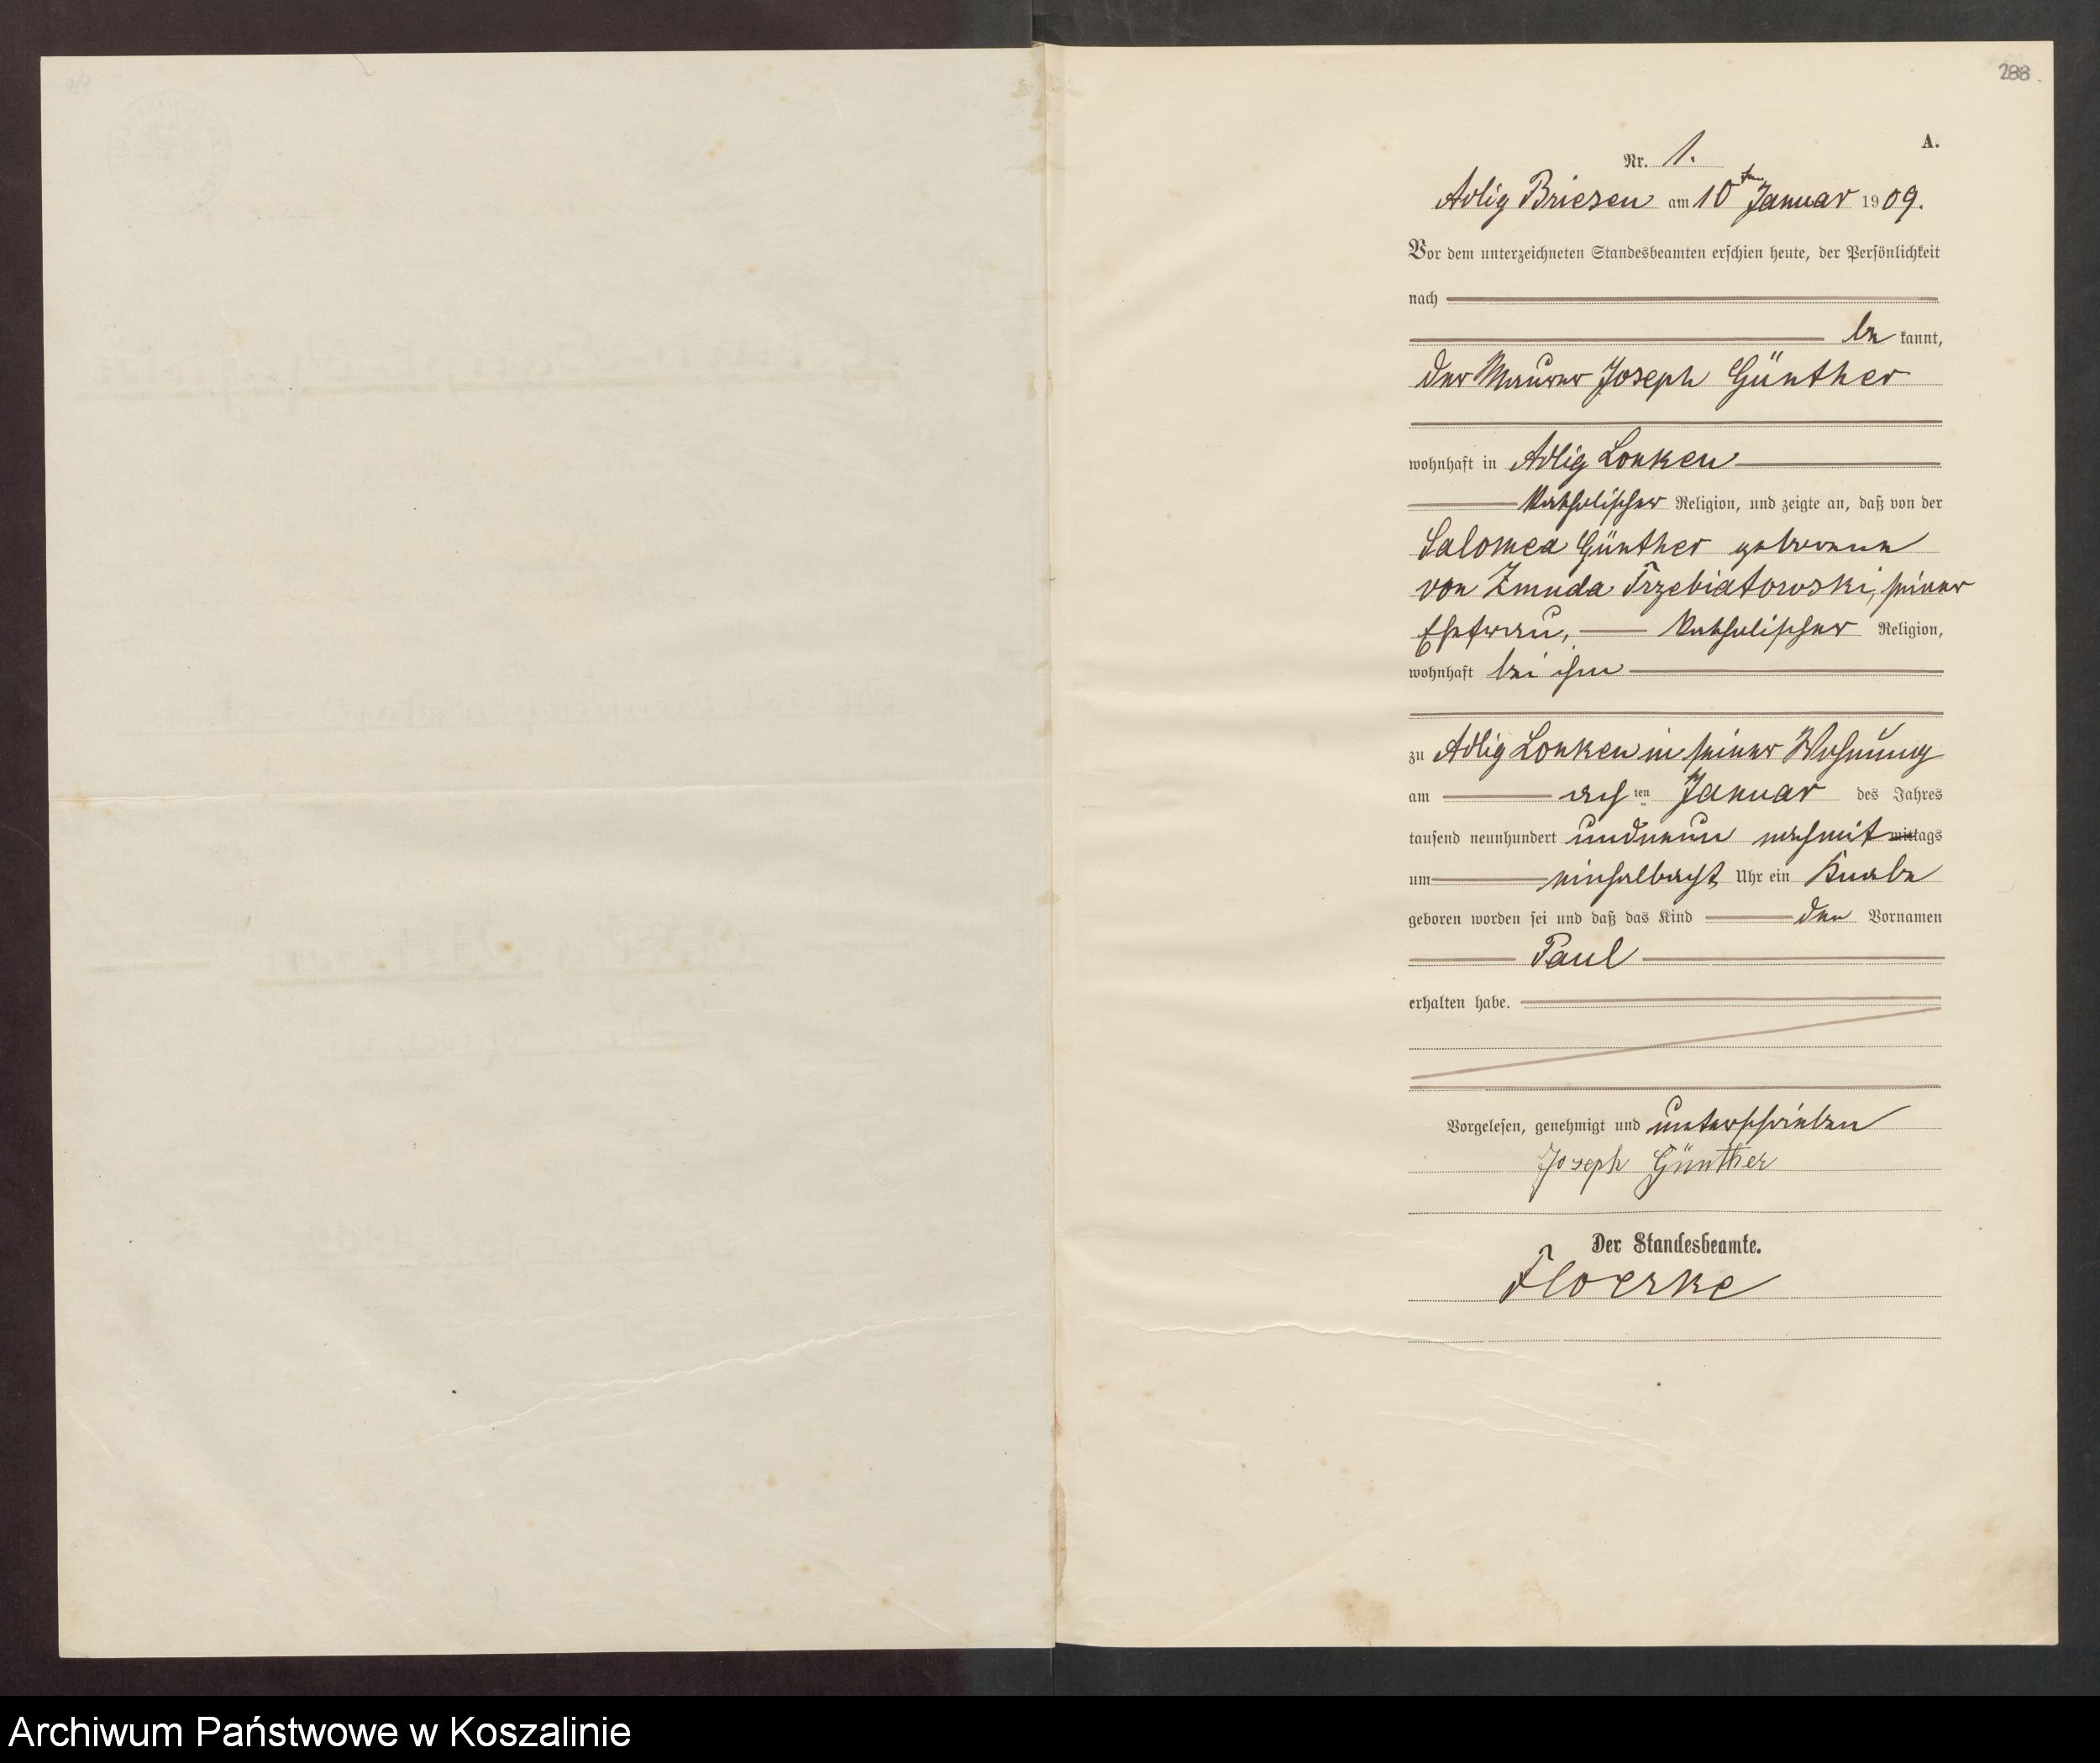 288.
A.
Nr. 1.
Adlig Briesen am 10ten Januar 1909.
Vor dem unterzeichneten Standesbeamten erschien heute, der Persönlichkeit
nach
be kannt,
der Maurer Joseph Günther
wohnhaft in Adlig Lonken
katholischer Religion, und zeigte an, daß von der
Salomea Günther geborene
von Zmuda Trzebiatowski, seiner
Ehefrau, katholischer Religion,
wohnhaft bei ihm
zu Adlig Lonken in seiner Wohnung
am acht ten Januar des Jahres
tausend neunhundert undneun nachmit mittags
um einhalbacht Uhr ein Knabe
geboren worden sei und daß das Kind den Vornamen
Paul
erhalten habe.
Vorgelesen, genehmigt und unterschrieben
Joseph Günther
Der Standesbeamte.
Floerke
Archiwum Państwowe w Koszalinie